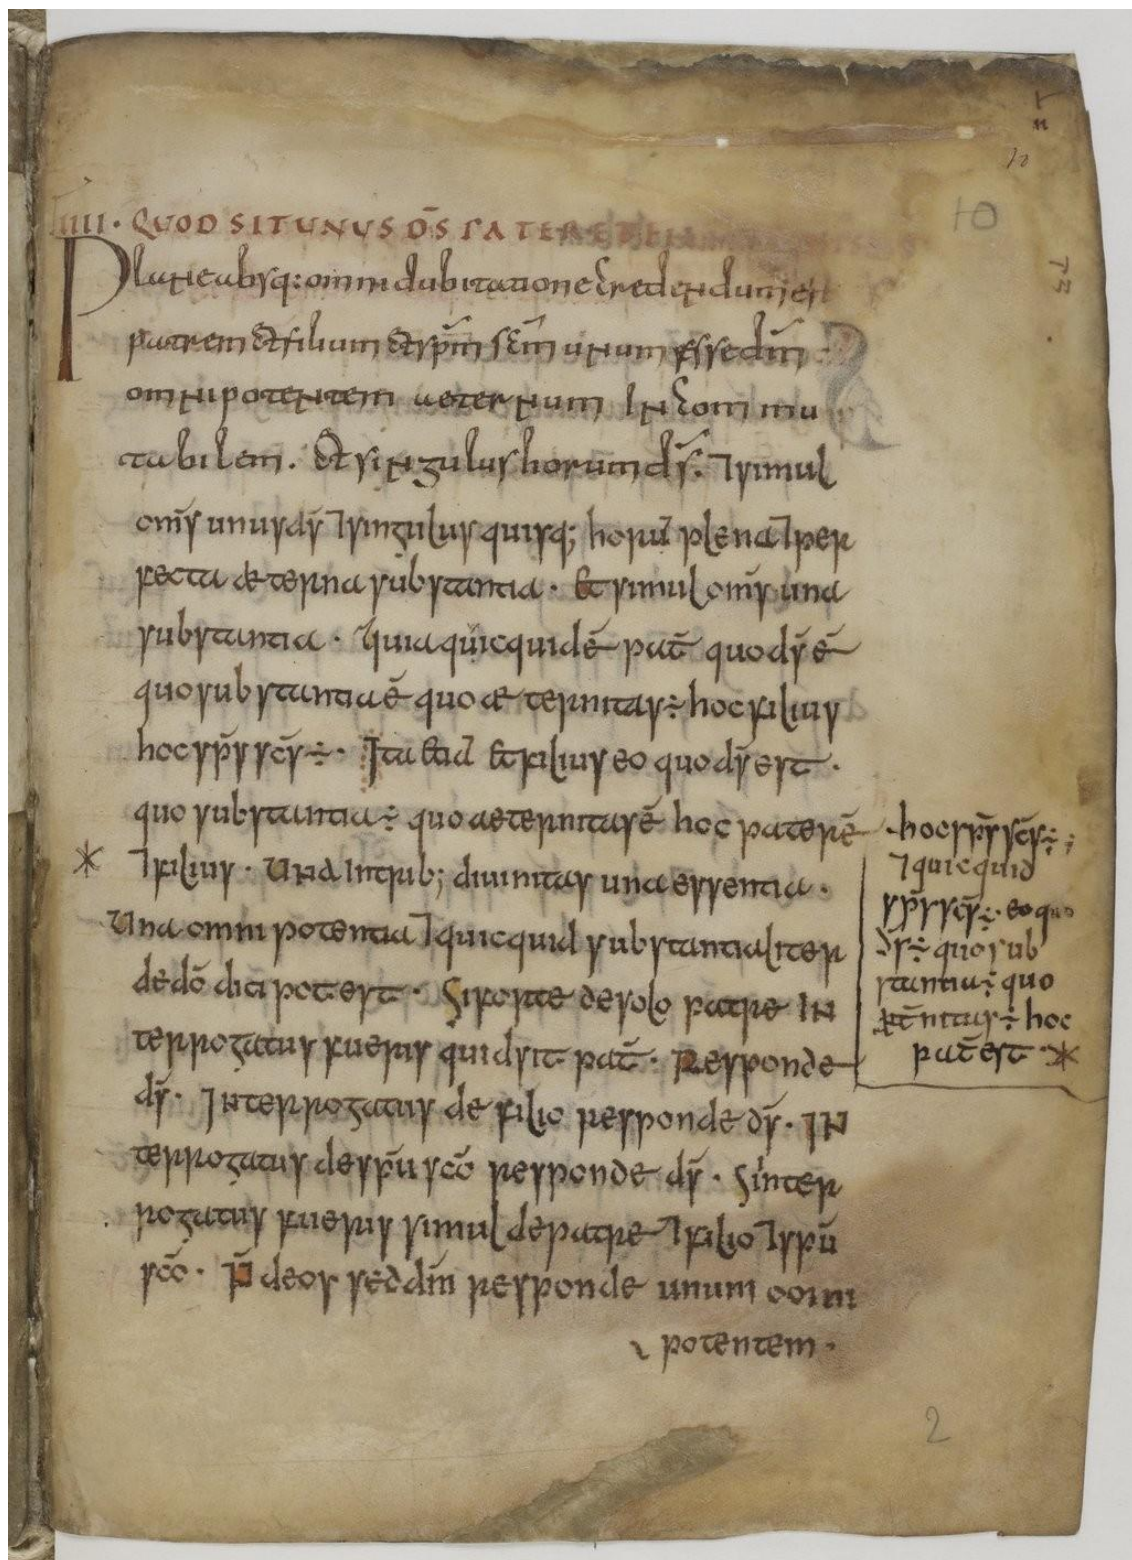 10
IIII. QUOD SIT UNUS DS̄ PATER ET
Plane absq: omni dubitatione credendum est
patrem et filium et spm̄ scm̄ unum esse dm̄
omnipotentem aeternum incommu
tabilem. et singulus horum ds̄. ⁊ simul
om̄s unus ds̄ ⁊ singulus quisq; horū plena ⁊ per
fecta æterna substantia. Et simul om̄s una
substantia. quia quicquid ē pat̄ quo ds̄ ē
quo substantia ē quo æternitas ÷ hoc filius
hoc sp̄s sc̄s ÷. Ita etiā et filius eo quo ds̄ est.
quo substantia ÷ quo aeternitas ē hoc pater ē
⁊ filius. Una in trib; divinitas una essentia.
Una omnipotentia ⁊ quicquid substantialiter
de dō dici potest. Si forte de solo patre in
terrogatus fueris quid sit pat̄. Responde
ds̄. Interrogatus de filio responde ds̄. In
terrogatus de sp̄u scō responde ds̄. Si inter
rogatus fueris simul de patre ⁊ filio ⁊ sp̄u
scō. N̄ deos sed dm̄ responde unum omni
potentem.
·hoc sp̄s sc̄s ÷;
⁊ quicquid
sp̄s sc̄s ÷. eo quo
ds̄ ÷ quo sub
stantia ÷ quo
æt̄nitas ÷ hoc
pat̄ est
2